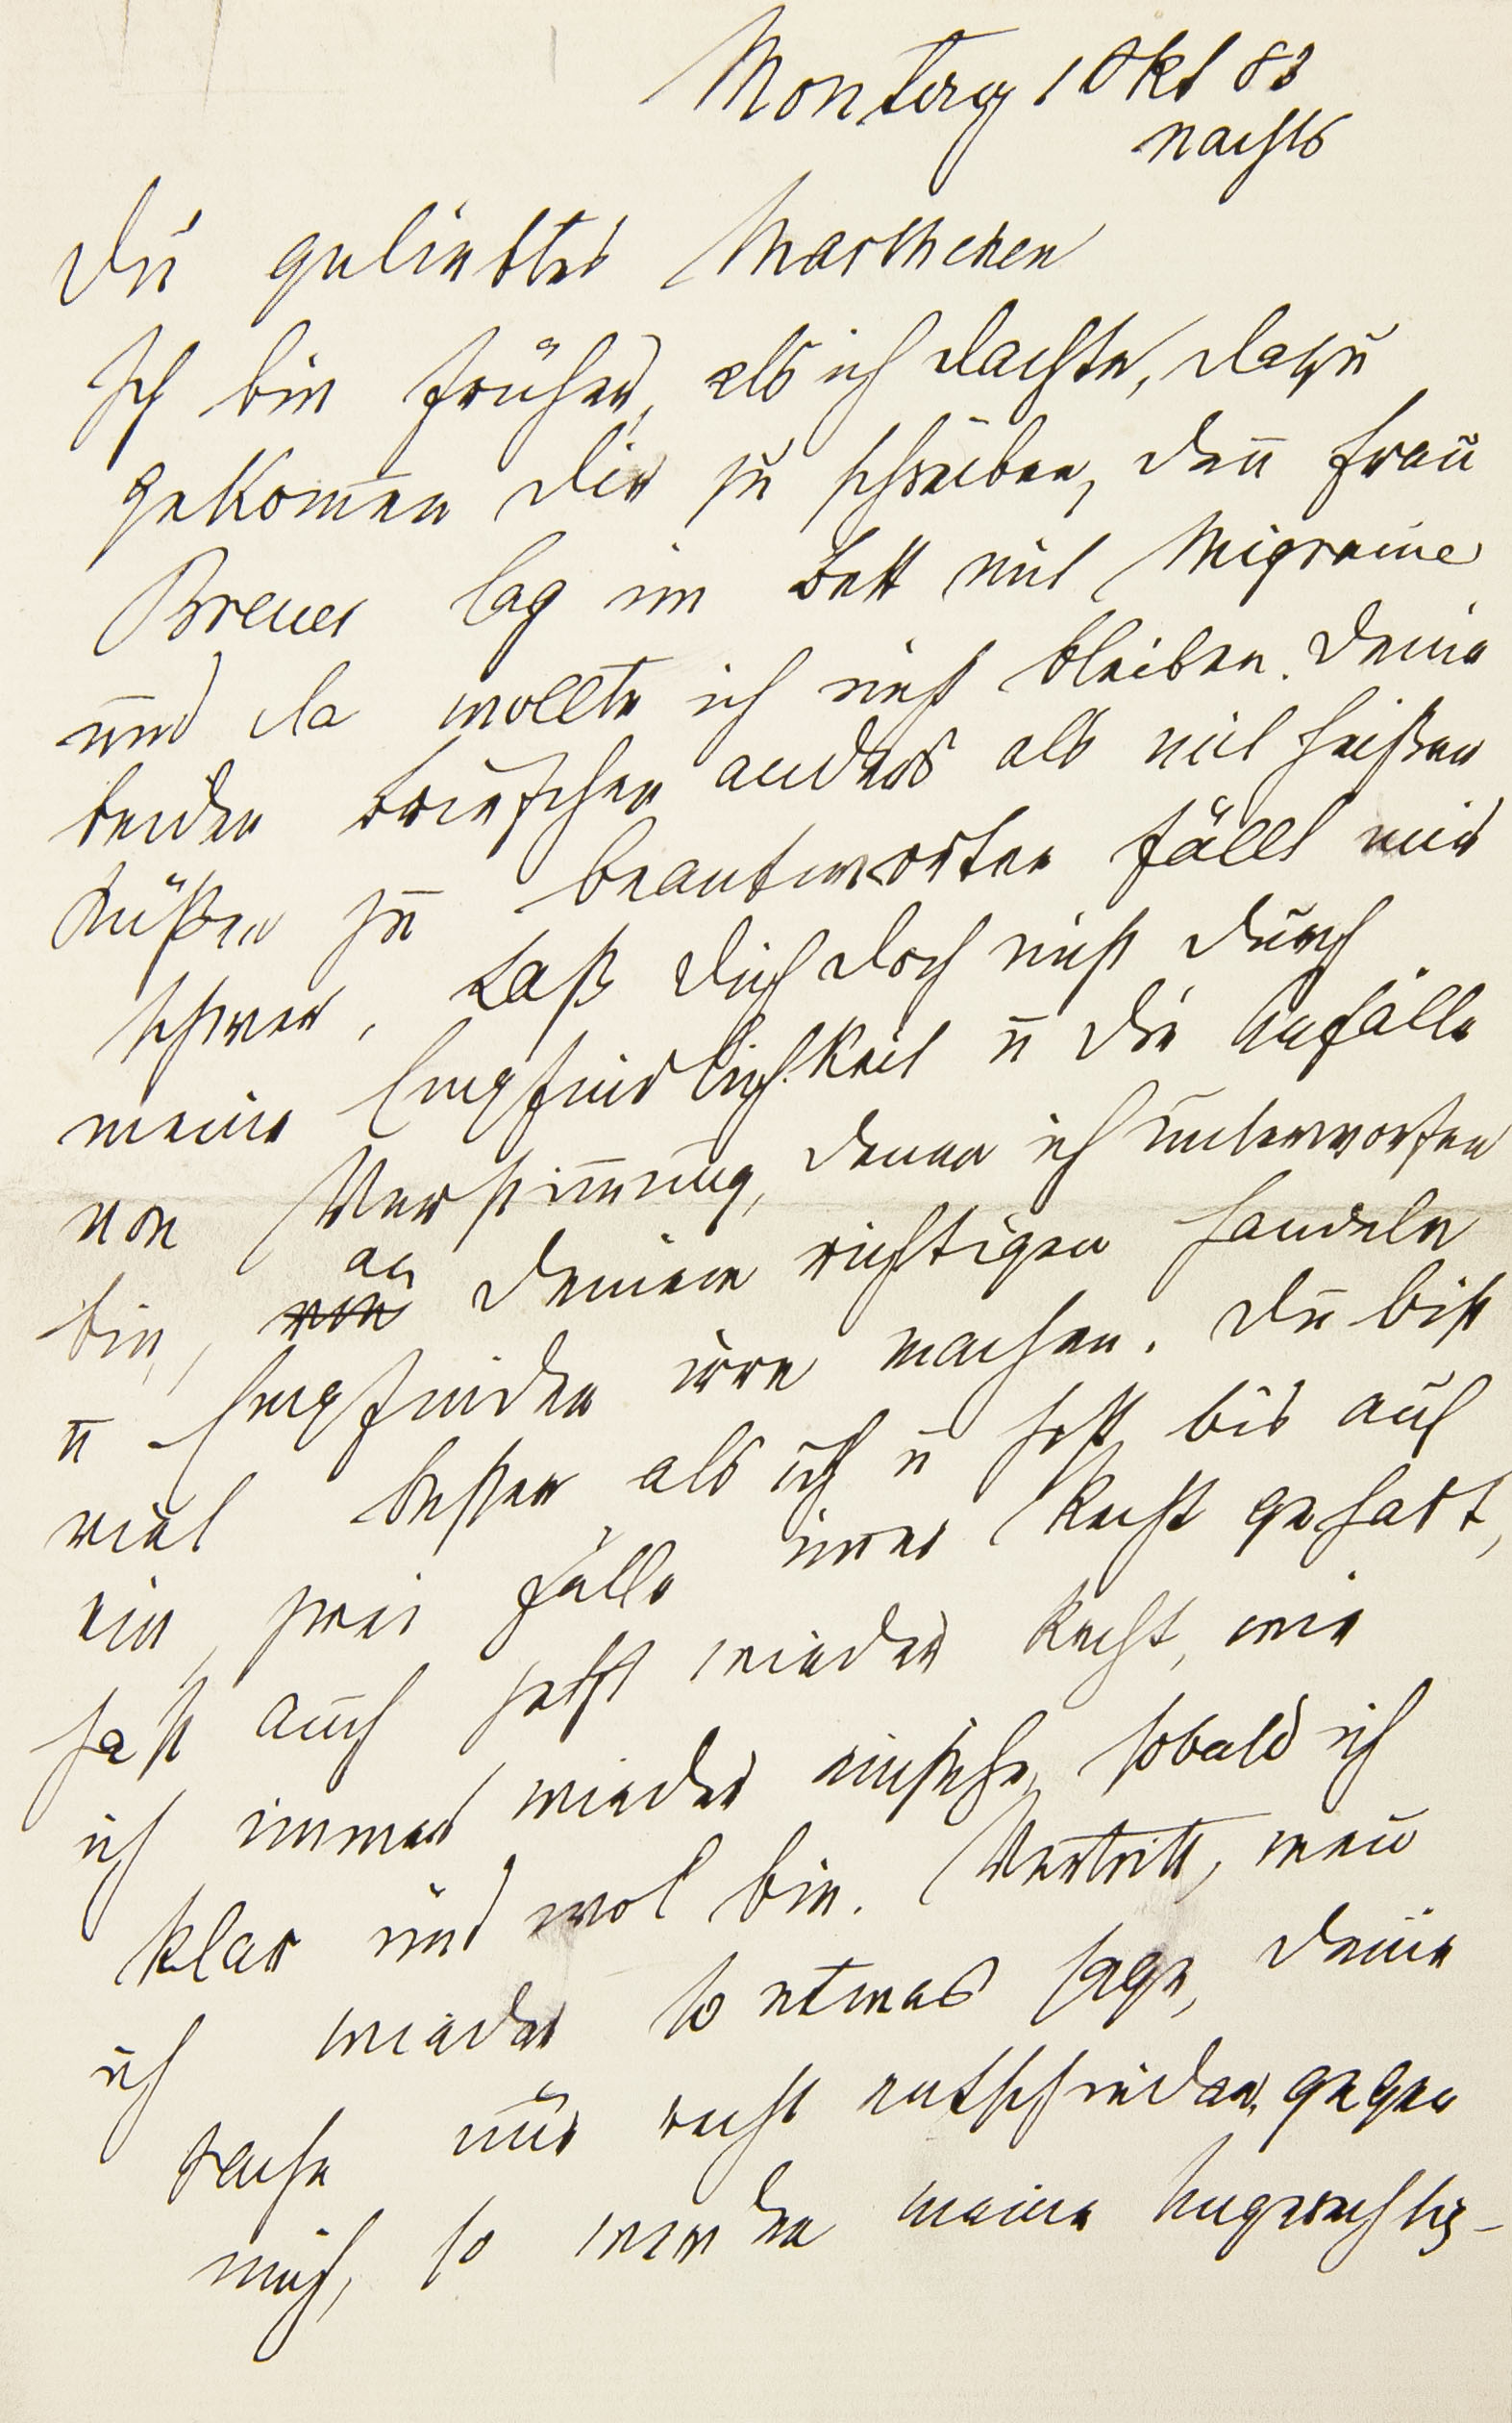 Montag 1 Okt 83
nachts
Du geliebtes Marthchen
Ich bin früher, als ich dachte, dazu
gekom̅en Dir zu schreiben, den̅ Frau
Breuer lag im Bett mit Migraine
und da wollte ich nicht bleiben. Deine
beiden Briefchen anders als mit heißen
Küßen zu beantworten fällt mir
schwer. Laß Dich doch nicht durch
meine Empfindlichkeit u die Anfälle
von Verstim̅ung, denen ich unterworfen
bin, an Deinem richtigen Handeln
u Empfinden irre machen. Du bist
viel beßer als ich u hast bis auf
ein, zwei Fälle im̅er Recht gehabt,
hast auch jetzt wieder Recht, wie
ich immer wieder einsehe, sobald ich
klar und wol bin. Vertritt, wen̅
ich wieder so etwas sage, Deine
Sache nur recht entschieden gegen
mich, so werden meine Ungerechtig-